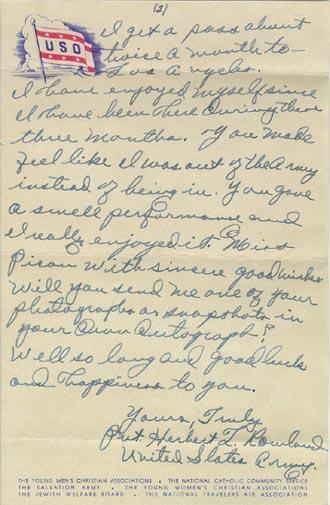 (2)
USO
I get a pass about
twice a month to
Los Angeles.
I have enjoyed myself since
I have been here during these
three months. You made
feel like I was out of the Army
instead of being in. You gave
a swell performance and
I really enjoyed it Miss
with sincere good wishes
Will you send me one of your
photographs or snapshots in
your own Autograph?
Well so long and good luck
and happiness to you.
Yours, Truly
Pvt. Herbert L. Rowland
United States Army.
THE YOUNG MEN'S CHRISTIAN ASSOCIATIONS • THE NATIONAL CATHOLIC COMMUNITY SERVICE
THE SALVATION ARMY • THE YOUNG WOMEN'S CHRISTIAN ASSOCIATIONS
THE JEWISH WELFARE BOARD • THE NATIONAL TRAVELERS AID ASSOCIATION